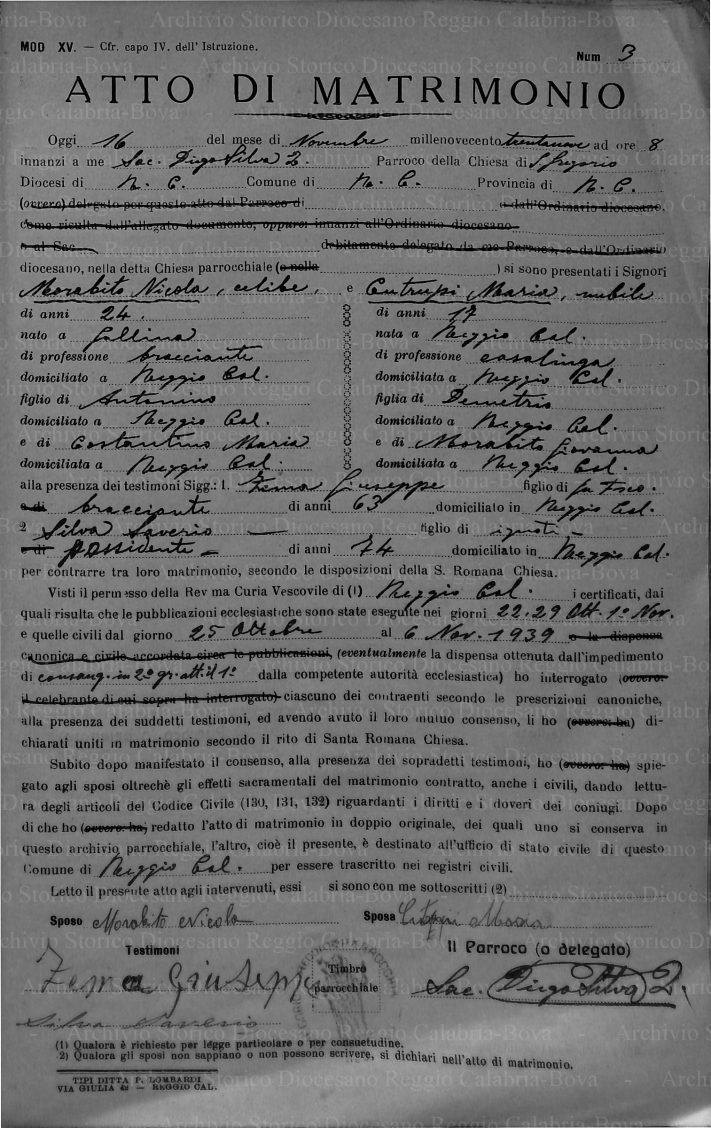 MOD XV. — Cfr. capo IV. dell' Istruzione.
Num 3
ATTO DI MATRIMONIO
Oggi 16 del mese di Novembre millenovecento trentanove ad ore 8
innanzi a me Sac. Diego Silva Z. Parroco della Chiesa di S. Gregorio
Diocesi di R. C. Comune di R. C. Provincia di R. C.
(ovvero) delegato per questo atto dal Parroco di o dall'Ordinario diocesano,
come risulta dall'allegato documento, oppure: innanzi all'Ordinario diocesano
o al Sac. debitamente delegato da me Parroco, o dall'Ordinario
diocesano, nella detta Chiesa parrocchiale (o nella ) si sono presentati i Signori
Morabito Nicola, celibe, e Cutrupi Maria, nubile
di anni 24. di anni 17
nato a Gallina nata a Reggio Cal.
di professione bracciante di professione casalinga
domiciliato a Reggio Cal. domiciliata a Reggio Cal.
figlio di Antonino figlia di Demetrio
domiciliato a Reggio Cal. domiciliato a Reggio Cal.
e di Costantino Maria e di Morabito Giovanna
domiciliata a Reggio Cal. domiciliata a Reggio Cal.
alla presenza dei testimoni Sigg.: 1. Zema Giuseppe figlio di fu Fsco.
e di bracciante di anni 63 domiciliato in Reggio Cal.
2 Silva Saverio — figlio di ignoti —
e di possidente — di anni 74 domiciliato in Reggio Cal.
per contrarre tra loro matrimonio, secondo le disposizioni della S. Romana Chiesa.
Visti il permesso della Rev ma Curia Vescovile di (1) Reggio Cal. i certificati, dai
quali risulta che le pubblicazioni ecclesiastiche sono state eseguite nei giorni 22.29 Ott. 1º Nov.
e quelle civili dal giorno 25 Ottobre al 6 Nov. 1939 o la dispensa
canonica e civile accordata circa le pubblicazioni, (eventualmente la dispensa ottenuta dall'impedimento
di consang. in 2º gr. att. il 1º dalla competente autorità ecclesiastica) ho interrogato (ovvero:
il celebrante di cui sopra ha interrogato) ciascuno dei contraenti secondo le prescrizioni canoniche,
alla presenza dei suddetti testimoni, ed avendo avuto il loro mutuo consenso, li ho (ovvero: ha) di-
chiarati uniti in matrimonio secondo il rito di Santa Romana Chiesa.
Subito dopo manifestato il consenso, alla presenza dei sopradetti testimoni, ho (ovvero: ha) spie-
gato agli sposi oltrechè gli effetti sacramentali del matrimonio contratto, anche i civili, dando lettu-
ra degli articoli del Codice Civile (130, 131, 132) riguardanti i diritti e i doveri dei coniugi. Dopo
di che ho (ovvero: ha) redatto l'atto di matrimonio in doppio originale, dei quali uno si conserva in
questo archivio parrocchiale, l'altro, cioè il presente, è destinato all'ufficio di stato civile di questo
Comune di Reggio Cal. per essere trascritto nei registri civili.
Letto il presente atto agli intervenuti, essi si sono con me sottoscritti (2)
Sposo Morabito Nicola Sposa Cutrupi Maria
Testimoni Il Parroco (o delegato)
Zema Giuseppe Timbro parrocchiale Sac. Diego Silva Z.
Silva Saverio
(1) Qualora è richiesto per legge particolare o per consuetudine.
2) Qualora gli sposi non sappiano o non possono scrivere, si dichiari nell'atto di matrimonio.
TIPI DITTA P. LOMBARDI
VIA GIULIA — REGGIO CAL.
Archivio Storico Diocesano Reggio Calabria-Bova